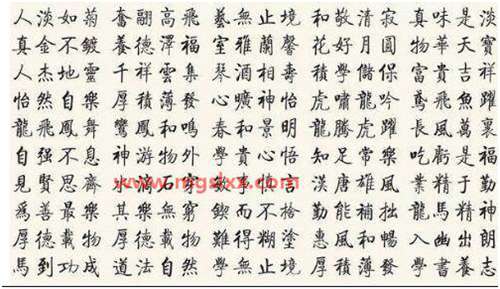 人淡如菊 奮翮高飛 藝無止境 和敬清寂 真味是淡
真金不鍍 養德澤福 室雅蘭馨 花好月圓 物華天寶
人杰地靈 千祥雲集 琴酒相壽 積學儲保 富貴吉祥
怡然自樂 厚積薄發 心曠神怡 虎嘯龍吟 鳶飛魚躍
龍飛鳳舞 鸞鳳和鳴 春和景明 龍騰虎躍 長風萬裏
自强不息 神游物外 學貴心悟 知足常樂 吃虧是福
見賢思齊 漢唐雄風
爲善最樂 其樂無窮 鍥而不捨 勤能補拙 龍馬精神
厚德載物 難得糊塗 惠風和暢 入幽出朗
馬到功成 道法自然 學無止境 厚積薄發 學書養志